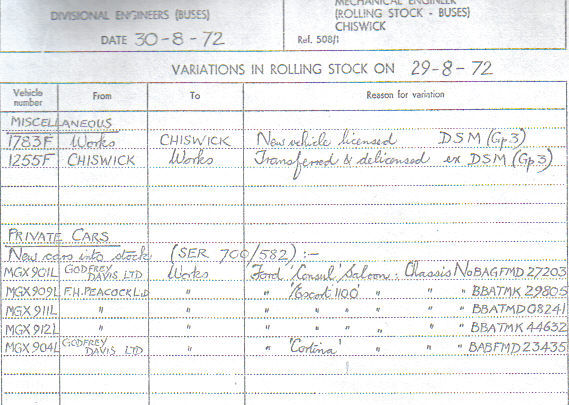 DIVISIONAL ENGINEERS (BUSES)
DATE 30-8-72
MECHANICAL ENGINEER
(ROLLING STOCK - BUSES)
CHISWICK
Ref. 508/1
VARIATIONS IN ROLLING STOCK ON 29-8-72
Vehicle number From To Reason for variation
MISCELLANEOUS
1783F Works CHISWICK New vehicle licensed DSM (Gp 3)
1255F CHISWICK Works Transferred & delicensed ex DSM (Gp 3)
PRIVATE CARS
New cars into stock (SER 700/582) :-
MGX901L GODFREY DAVIS LTD Works Ford 'Consul' Saloon: Chassis No BAGFMD 27203
MGX909L F.H.PEACOCK LtD " " 'Escort 1100' " " " BBATMK 29805
MGX911L " " " " " " " " BBATMD 08241
MGX912L " " " " " " " BBATMK 44632
MGX904L GODFREY DAVIS LTD " " 'Cortina' " " " BABFMD 23435